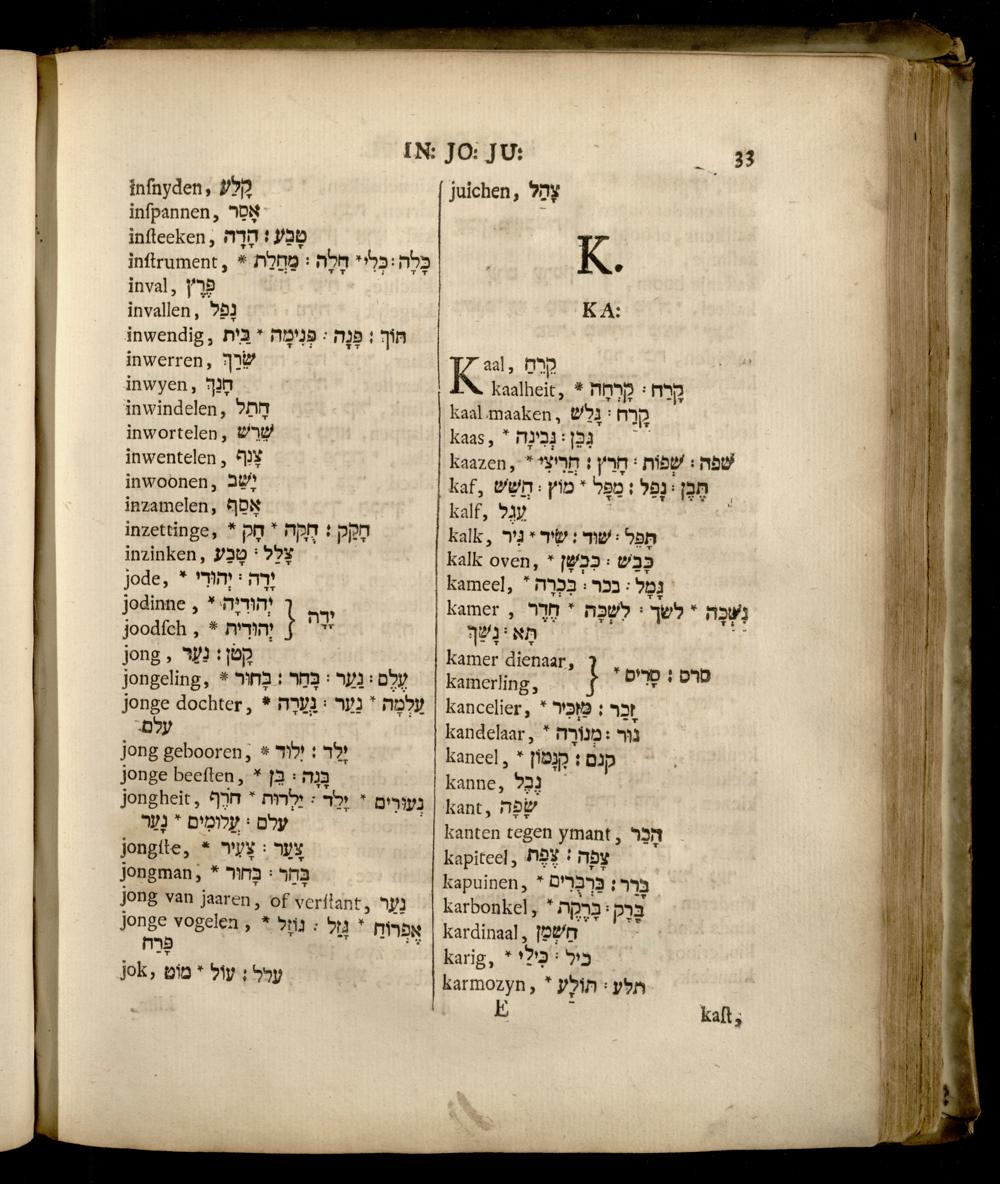 IN: JO: JU: 33
inſnyden, קָלַע
inſpannen, אָסַר
inſteeken, טָבַע : הָדָה
inſtrument, * כָּלָה : כְּלִי * חָלָה : מַחֲלַת
inval, פֶּרֶץ
invallen, נָפַל
inwendig, חוֹךְ : פָּנָה : פְּנִימָה * בַּיִת
inwerren, שָׂרַךְ
inwyen, חָנַךְ
inwindelen, חָתַל
inwortelen, שָׁרַשׁ
inwentelen, צָנַף
inwoonen, יָשַׁב
inzamelen, אָסַף
inzettinge, חָקַק : חֻקָּה * חֹק *
inzinken, צָלַל : טָבַע
jode, * יָדָה : יְהוּדִי
jodinne, * יְהוּדִיָּה } יָדָה
joodſch, * יְהוּדִית
jong, קָטֹן : נַעַר
jongeling, * עֶלֶם : נַעַר : בָּחַר : בָּחוּר
jonge dochter, * עַלְמָה * נַעַר : נַעֲרָה
עלם
jong gebooren, * יָלַד : יִלּוֹד
jonge beeſten, * בָּנָה : בֵּן
jongheit, נְעוּרִים * יָלַד : יַלְדוּת * חֹרֶף
עלם : עֲלוּמִים * נָעַר
jongſte, * צָעַר : צָעִיר
jongman, * בָּחַר : בָּחוּר
jong van jaaren, of verſtant, נַעַר
jonge vogelen, * אֶפְרוֹחַ * גָּזַל : גּוֹזָל
פָּרַח
jok, עלל : עוֹל * מוֹט
juichen, צָהַל
K.
KA:
Kaal, קֵרֵחַ
kaalheit, * קָרַח : קָרְחָה
kaal maaken, קָרַח : גָּלַשׁ
kaas, * גבן : גְּבִינָה
kaazen, * שׁפה : שְׁפוֹת : חָרַץ : חֲרִיצֵי
kaf, תֶּבֶן : נָפַל : מַפָּל * מוֹץ : חֲשַׁשׁ
kalf, עֵגֶל
kalk, תָּפֵל : שׂוּד : שִׂיד * גִּיר
kalk oven, * כָּבַשׁ : כִּבְשָׁן
kameel, * גָּמָל : בכר : בִּכְרָה
kamer, נִשְׁכָּה * לשׁך : לִשְׁכָּה * חֶדֶר
תָּא : נָשַׁךְ
kamer dienaar, } סרס : סָרִים *
kamerling,
kancelier, * זָכַר : מַזְכִּיר
kandelaar, * נוּר : מְנוֹרָה
kaneel, * קנם : קִנָּמוֹן
kanne, נֶבֶל
kant, שָׂפָה
kanten tegen ymant, הָכַר
kapiteel, צָפָה : צֶפֶת
kapuinen, * בָּרַר : בַּרְבֻּרִים
karbonkel, * בָּרָק : בָּרֶקֶת
kardinaal, חַשְׁמַן
karig, * כיל : כִּילַי
karmozyn, * תלע : תּוֹלָע
E kaſt,